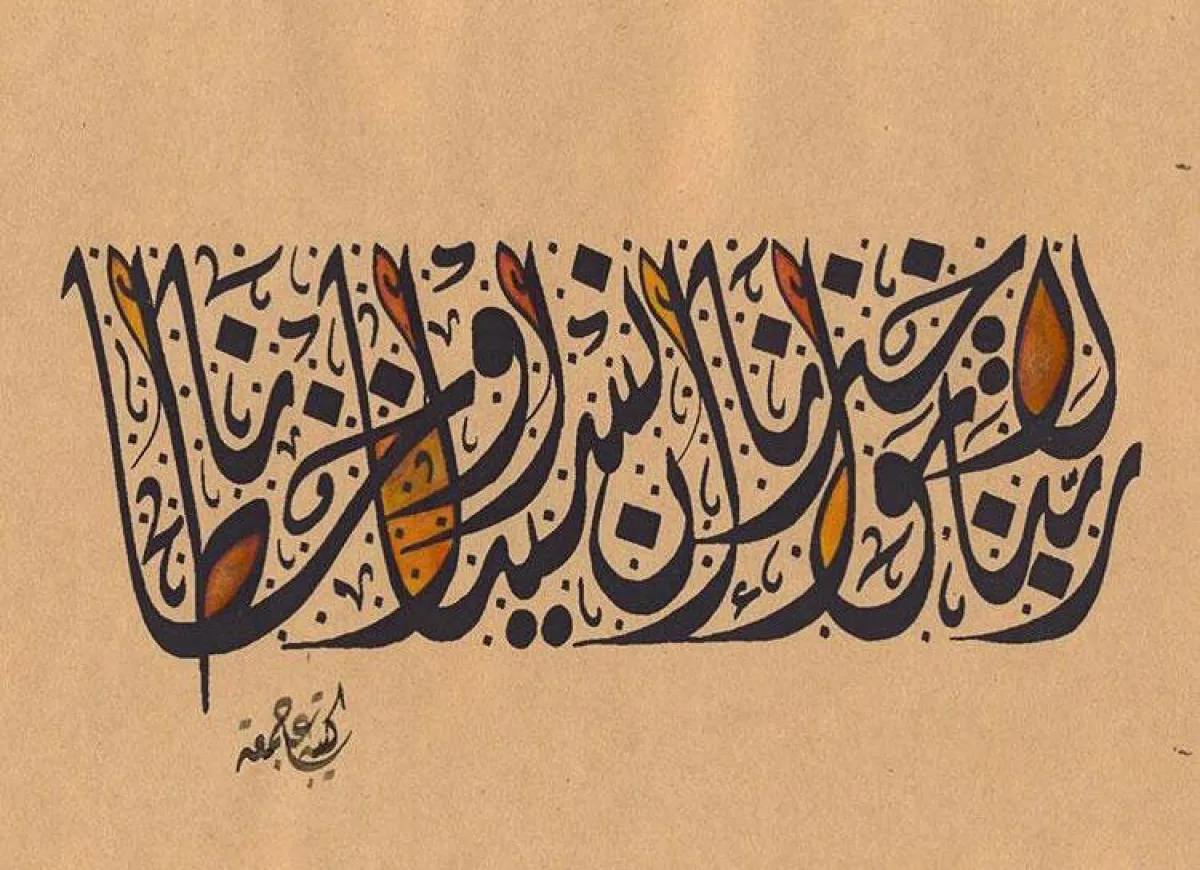 ربنا لا تؤاخذنا إن نسينا أو أخطأنا
كتبه جمعة